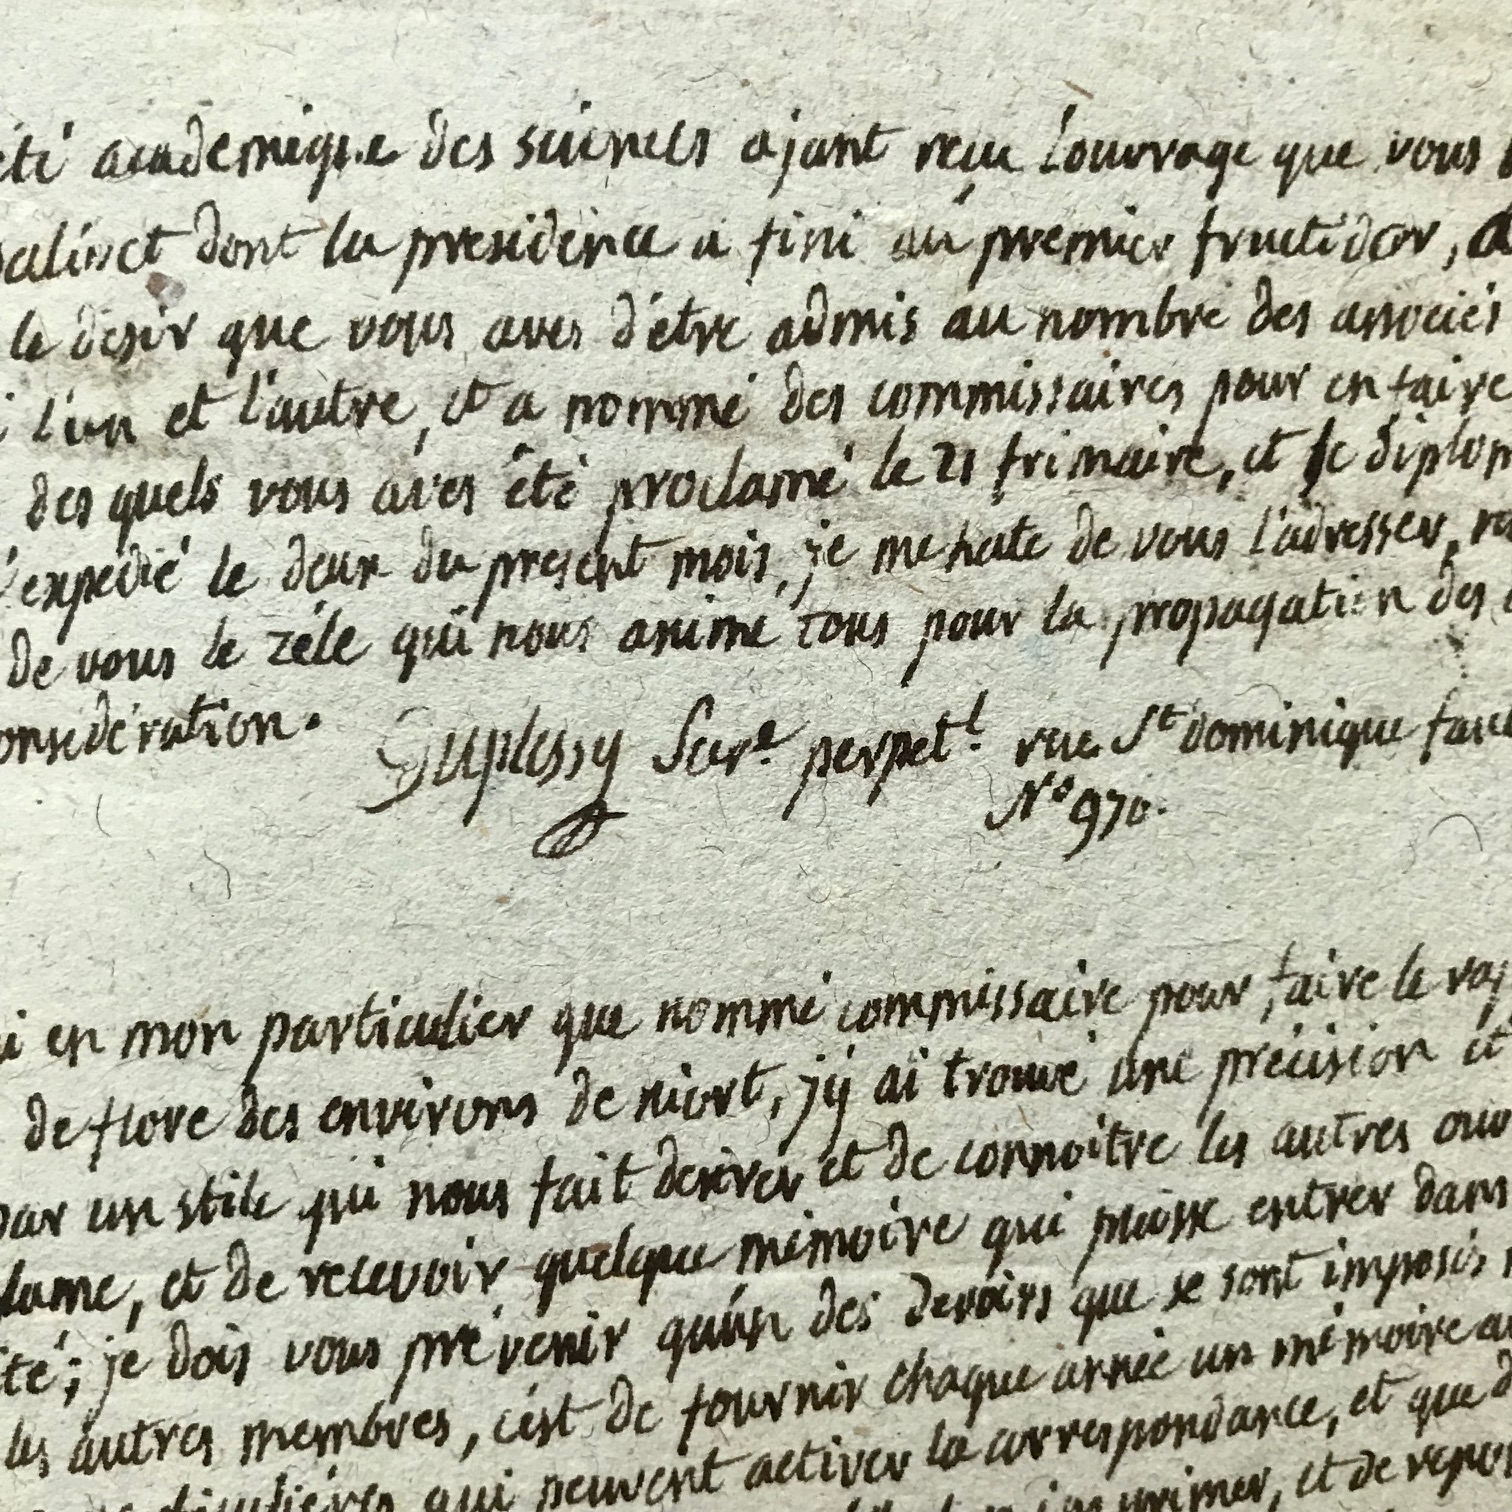 académique des sciences ajant reçu l'ouvrage que vous
dont la présidence a fini au premier fructidor, a
le desir que vous aves d'être admis au nombre des associés
l'un et l'autre, et a nommé des commissaires pour en faire
des quels vous aves été proclamé le 21 frimaire, et le diplom
expedié le deux du present mois, je me hate de vous l'adresser,
de vous le zéle qui nous anime tous pour la propagation des
onsidération. Duplessy Secr.e perpet.l rue St dominique
N° 970.
en mon particulier que nommé commissaire pour faire le rap
de flore des environs de niort, j'y ai trouvé une précision et
par un stile qui nous fait desirer et de connoitre les autres ouv
lame, et de recevoir quelque mémoire qui puisse entrer dans
ité; je dois vous prévenir qu'un des devoirs que se sont imposés
les autres membres, c'est de fournir chaque année un mémoire au
qui peuvent activer la correspondance, et que
imprimer, et de repon